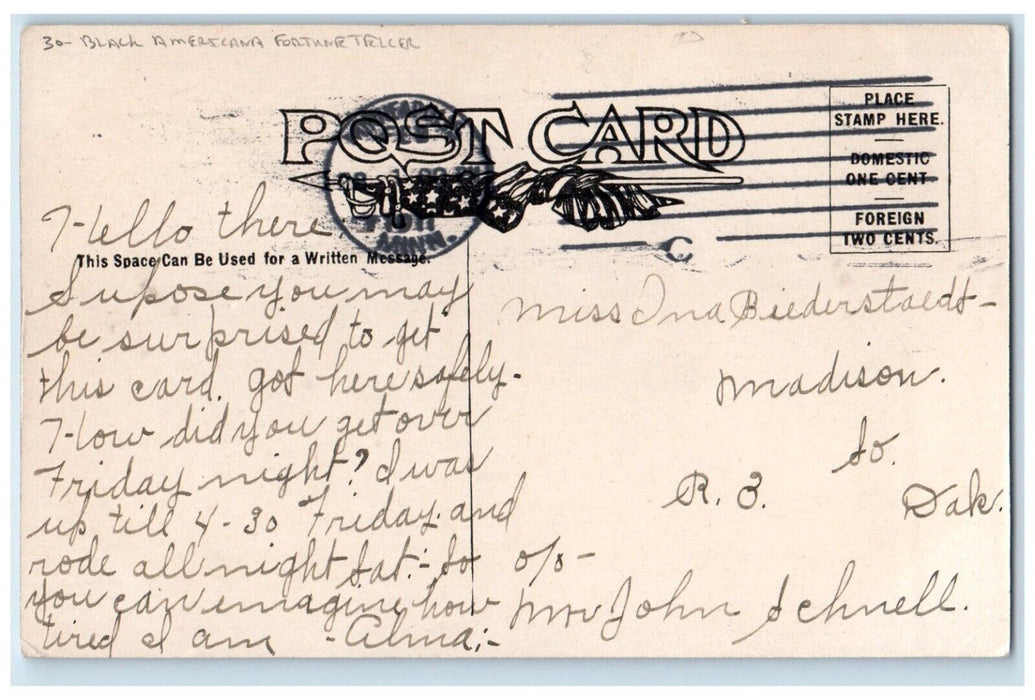 30- BLACK AMERICANA FORTUNE TELLER
POST CARD
PLACE
STAMP HERE.
DOMESTIC
ONE CENT
FOREIGN
TWO CENTS.
MINN.
C
This Space Can Be Used for a Written Message.
Hello there
Supose you may
be surprised to get
this card. got here safely-
How did you get over
Friday night? I was
up till 4-30 Friday. and
rode all night Sat:- So
you can imagine how
tired I am -Alma;-
Miss Ina Biederstaedt-
Madison.
So.
R. 3. Dak.
o/o-
Mr John Schnell.